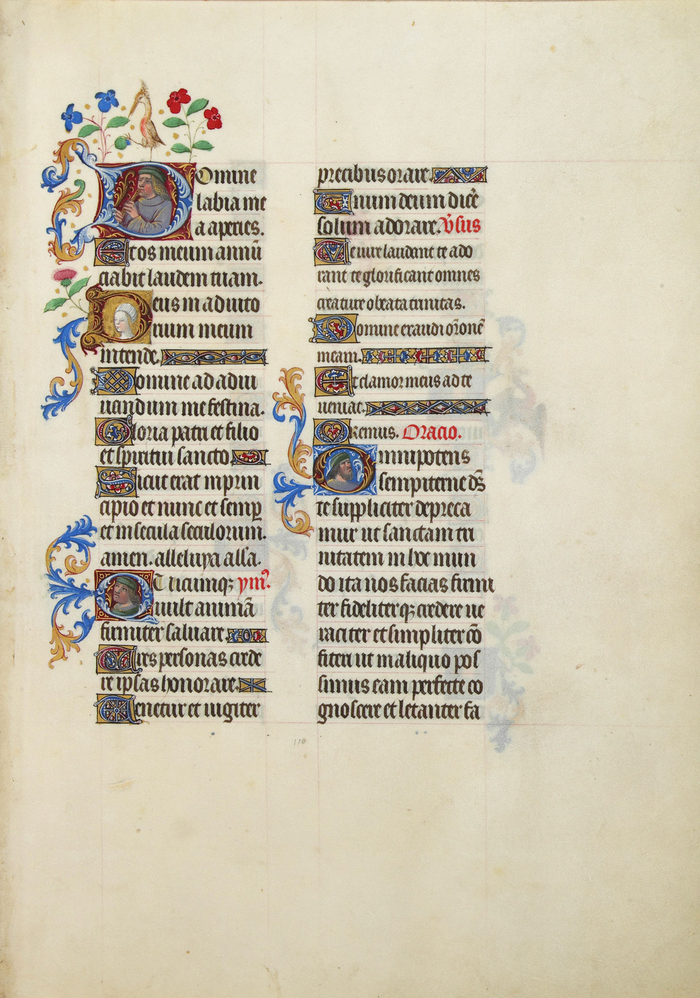 Domine
labia me
a aperies.
Et os meum annū
ciabit laudem tuam.
Deus in adiuto
rium meum
intende.
Domine ad adiu
uandum me festina.
Gloria patri et filio
et spiritui sancto
Sicut erat in prin
cipio et nunc et semp
et in secula seculorum.
amen. alleluya alla.
Quicumq ym̄.
uult animā
firmiter saluare
Tres personas crede
re ipsas honorare
Tenetur et iugiter
precibus orare.
Et unum deum dicē
solum adorare. v̄sus
Te iure laudant te ado
rant te glorificant omnes
creature o beata trinitas.
Domine exaudi or̄onē
meam.
Et clamor meus ad te
ueniat.
Oremus. Oracio.
Omnipotens
sempiterne ds̄
te suppliciter depreca
mur ut sanctam tri
nitatem in hoc mun
do ita nos facias firmi
ter fideliterq credere ue
raciter et simpliter cō
fiteri ut in aliquo pos
simus eam perfecte co
gnoscere et letanter fa